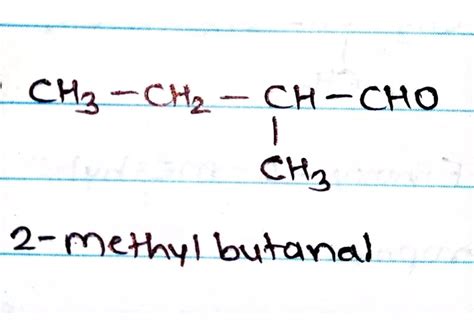 CH3 - CH2 - CH - CHO
|
CH3
2-methyl butanal